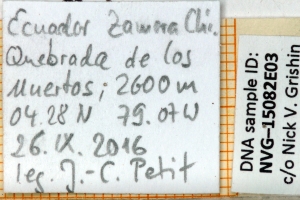 Ecuador Zamora Chi.
Quebrada de los
Muertos; 2600m
04.28N 79.07W
26.IX.2016
leg. J.-C. Petit
DNA sample ID:
NVG-15082E03
c/o Nick V. Grishin